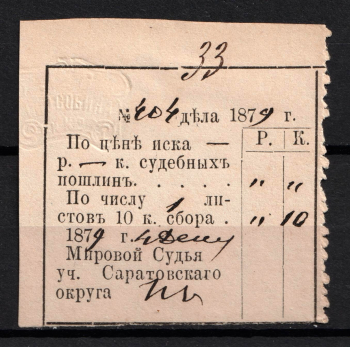 33
№ 404 дѣла 1879 г.
Р. К.
По цѣнѣ иска —
р. — к. судебных
пошлинъ. . . . . " "
По числу 1 ли-
стовъ 10 к. сбора . " 10
1879 г.
Мировой Судья
уч. Саратовскаго
округа